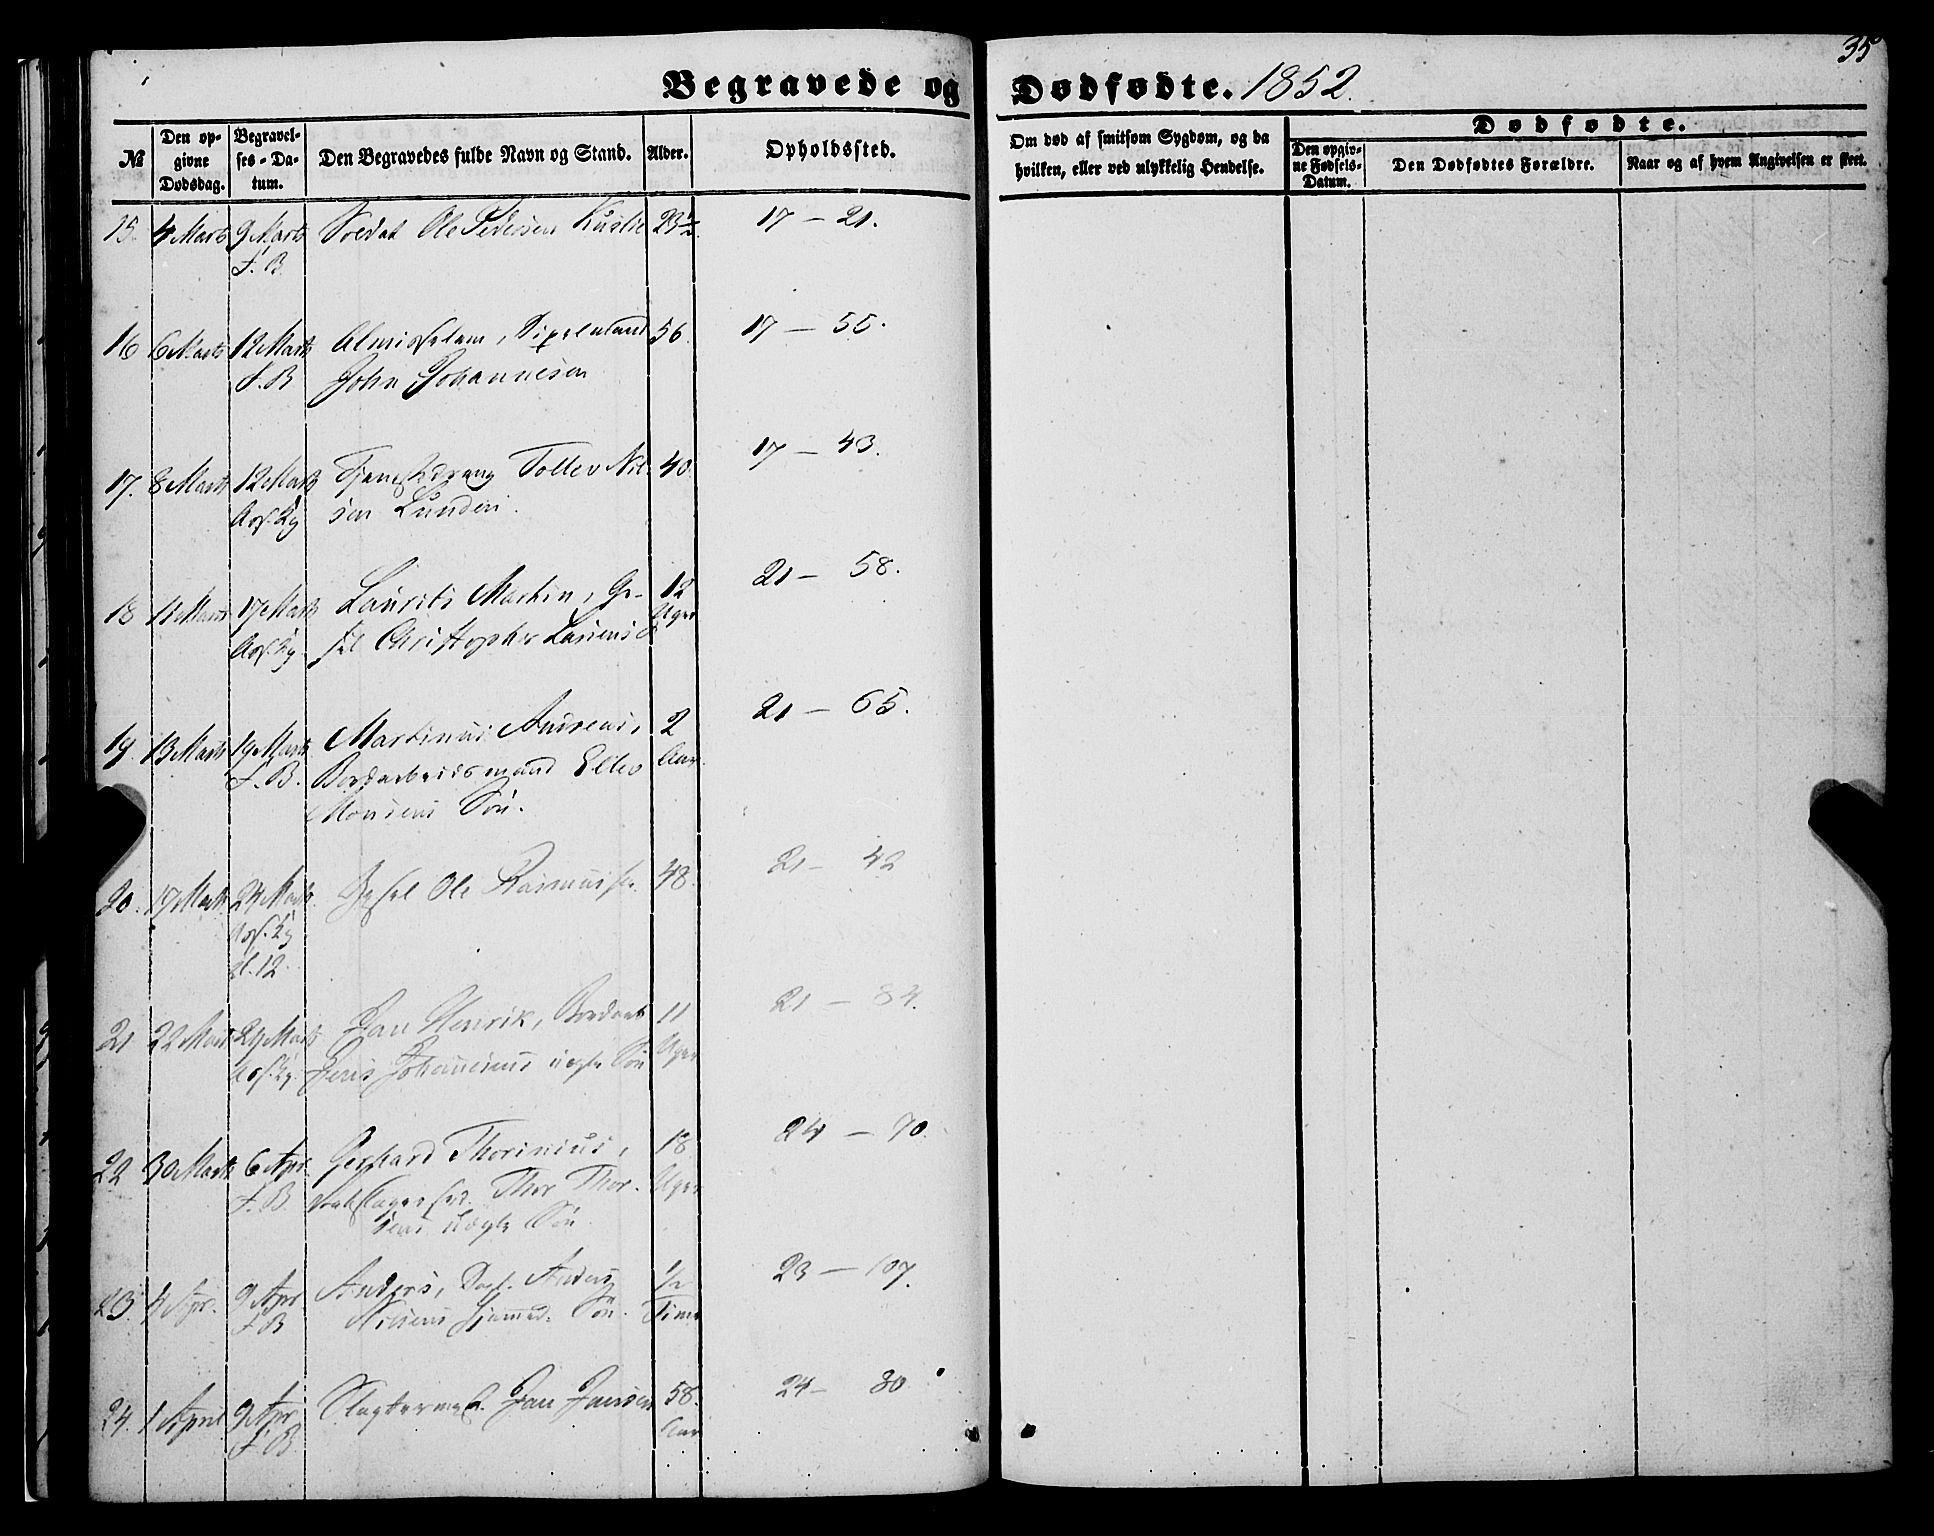 35
Begravede og Dødfødte. 1852.
No
Den opgivne Dødsdag.
Begravelses-Datum.
Den Begravedes fulde Navn og Stand.
Alder.
Opholdssted.
Om død af smitsom Sygdom, og da hvilken, eller ved ulykkelig Hendelse.
Dødfødte.
Den opgivne Fødsels-Datum.
Den Dødfødtes Forældre.
Naar og af hvem Angivelsen er skeet.
15. 4 Marts 9 Marts Soldat Ole Pedersen 23½ 17 – 21.
F. B.
16 6 Marts 12 Marts Almisselem, 56 17 – 55.
F. B John Johannesen
17. 8 Marts 12 Marts Tjenestdreng Tollev Nil- 40. 17 – 43.
Ass. Kg sen Lunden.
18 11 Marts 17 Marts Laurits Martin, Ge- 12 21 – 58.
Ass. Kg. sel Christopher Larsens S Uger
19. 13 Marts 19 Marts Martinus Andreas, 2 21 – 65.
F. B. Bordarbeidsmand Ellev Aar
Monsens Søn.
20. 17 Marts 24 Marts Gesel Ole Rasmussen 48. 21 – 42
Ass. Kg
kl. 12.
21 22 Marts 24 Marts Jan Henrik, Bordarb 11 21 – 84.
Ass. Kg. Jens Johannesens uægte Søn Uger
22 30 Marts 6 Apr. Gerhard Thorinius, 18 24 – 90.
F. B. Thor Thor- Uger
sens uægte Søn
23. 4 Apr. 9 Apr Anders, Dags. Anders ½ 23 – 107.
F B Nilsens hjemmed. Søn. Time
24. 1 April 9 Apr Slagtermest. Jan Jansen 58. 24 – 80
F. B Aar